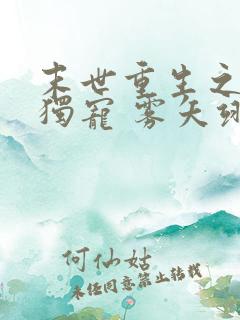 末世重生之
獨寵 雾矢翊
何仙姑
未经同意禁止转载